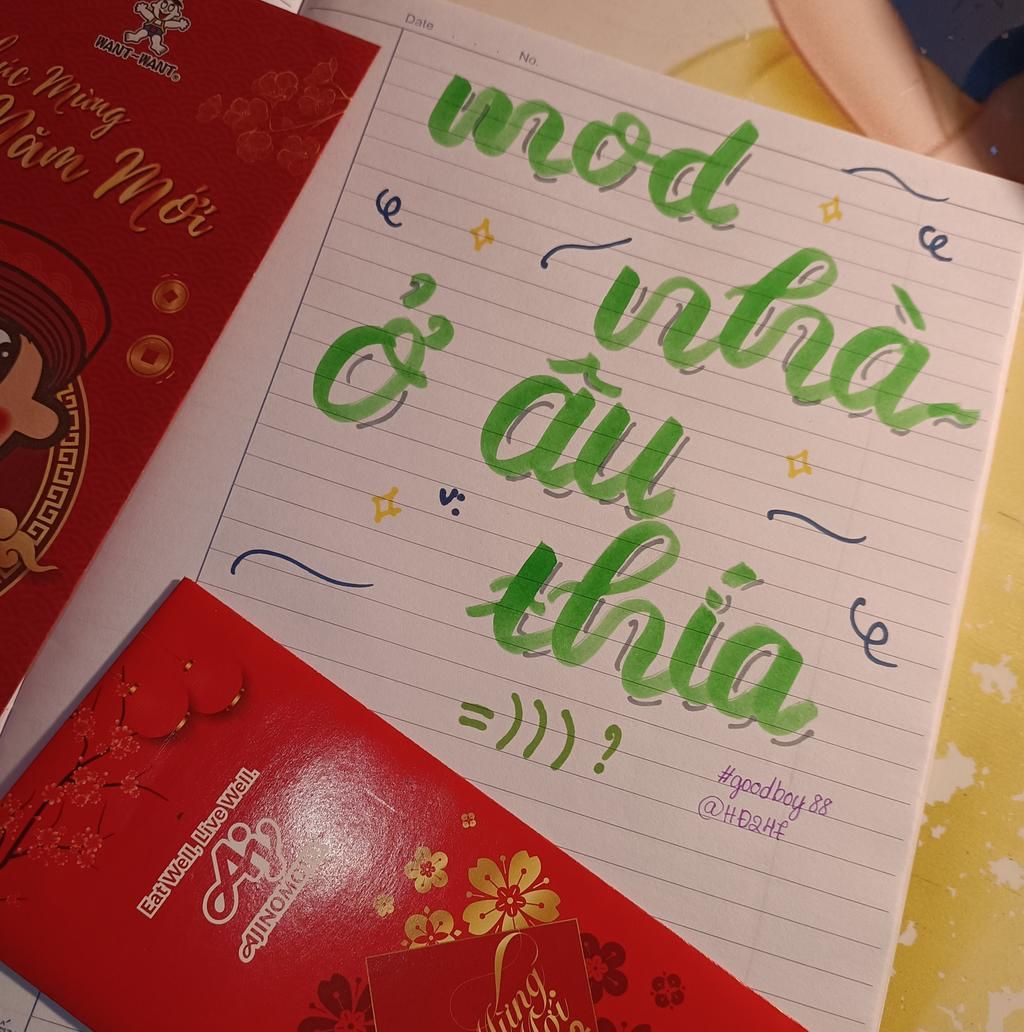 WANT-WANT®
Chúc Mừng
Năm Mới
Date
No.
mod
nhà
Ở ẩu
thia
=))) ?
v:
#goodboy 88
@HĐ2HF
Eat Well, Live Well.
AJINOMOTO